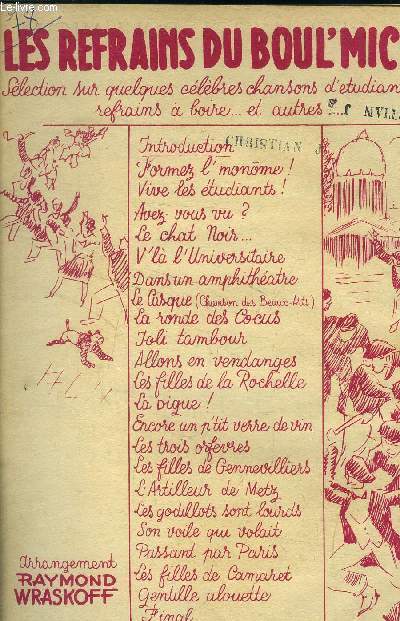 www.le-livre.com
78
LES REFRAINS DU BOUL'MIC
Sélection sur quelques célèbres chansons d'étudian
refrains à boire... et autres...
CHRISTIAN
Introduction
Formez l'monôme !
Vive les étudiants !
Avez-vous vu ?
Le chat Noir...
V'là l'Universitaire
Dans un amphithéatre
Le Casque (Chanson des Beaux-Arts)
La ronde des Cocus
Joli tambour
Allons en vendanges
Les filles de la Rochelle
La Digue !
Encore un p'tit verre de vin
Les trois orfèvres
Les filles de Gennevilliers
L'Artilleur de Metz
Les godillots sont lourds
Son voile qui volait
Passant par Paris
Les filles de Camaret
Gentille alouette
Final
Arrangement
RAYMOND
WRASKOFF